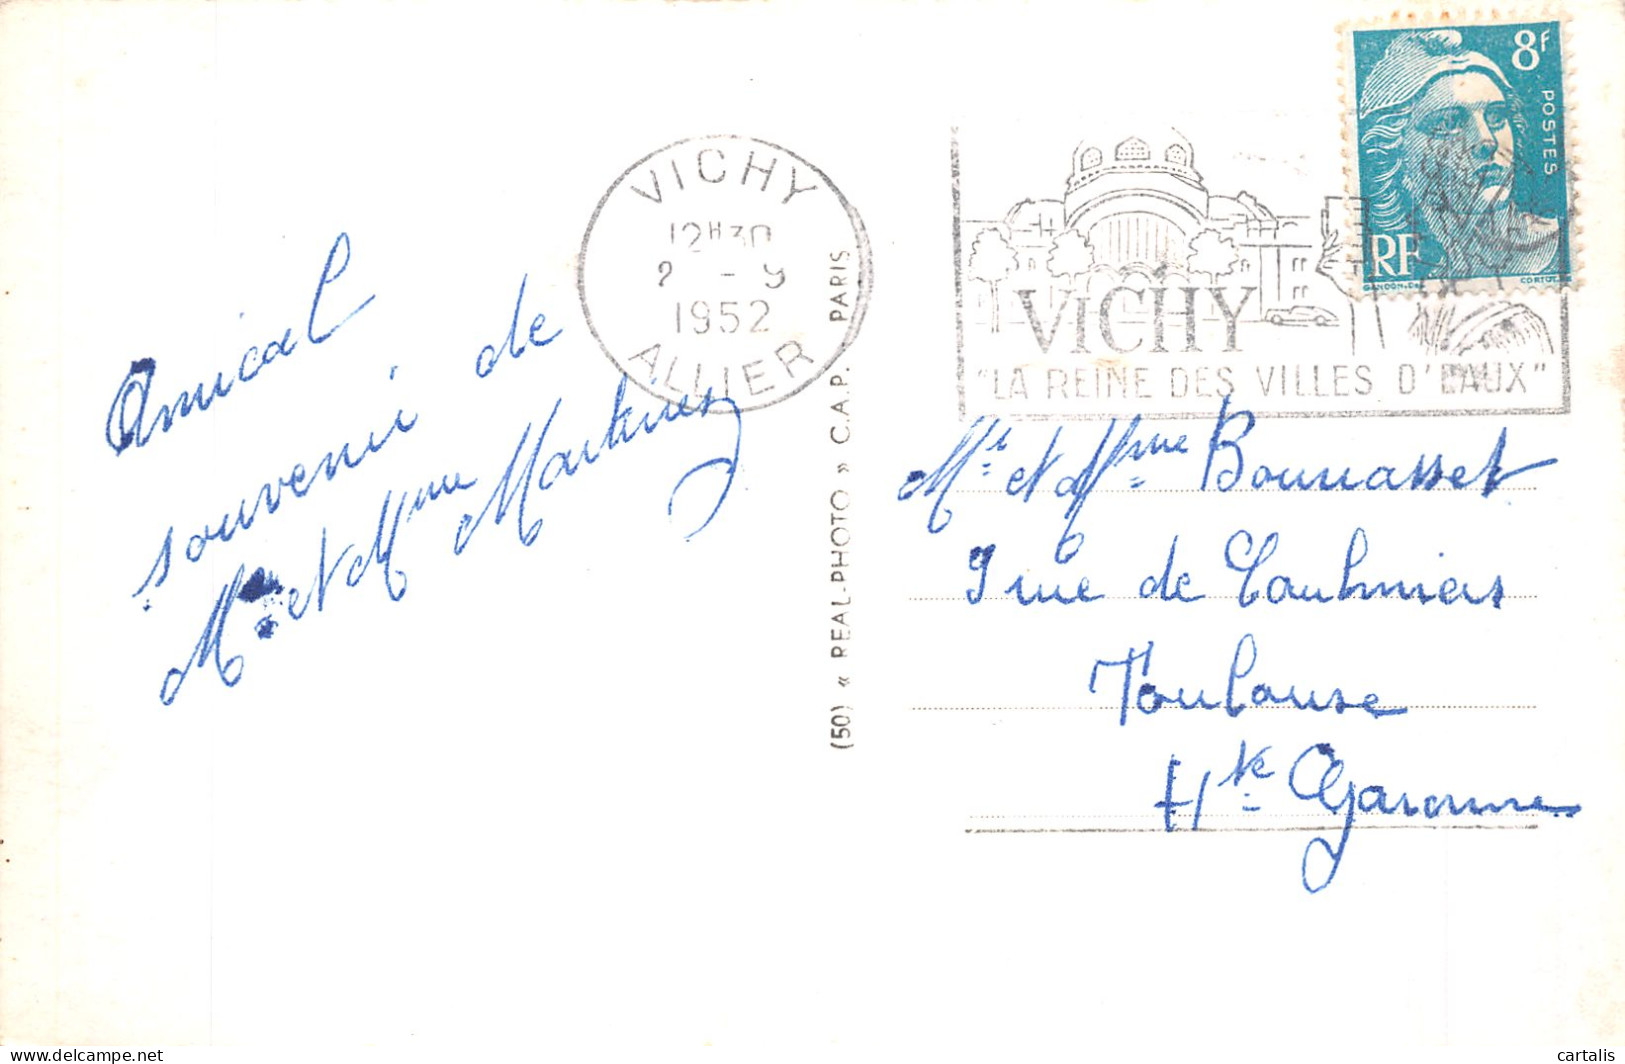 Amical
souvenir de
Mr et Mme Martinez
VICHY
12H30
2 - 9
1952
ALLIER
(50) « REAL-PHOTO » C.A.P. PARIS
8F
POSTES
RF
GANDON-DEL
CORTOT
VICHY
"LA REINE DES VILLES D'EAUX"
Mr et Mme Bonnasset
9 rue de Caulmiers
Toulouse
Hte Garonne
cartalis